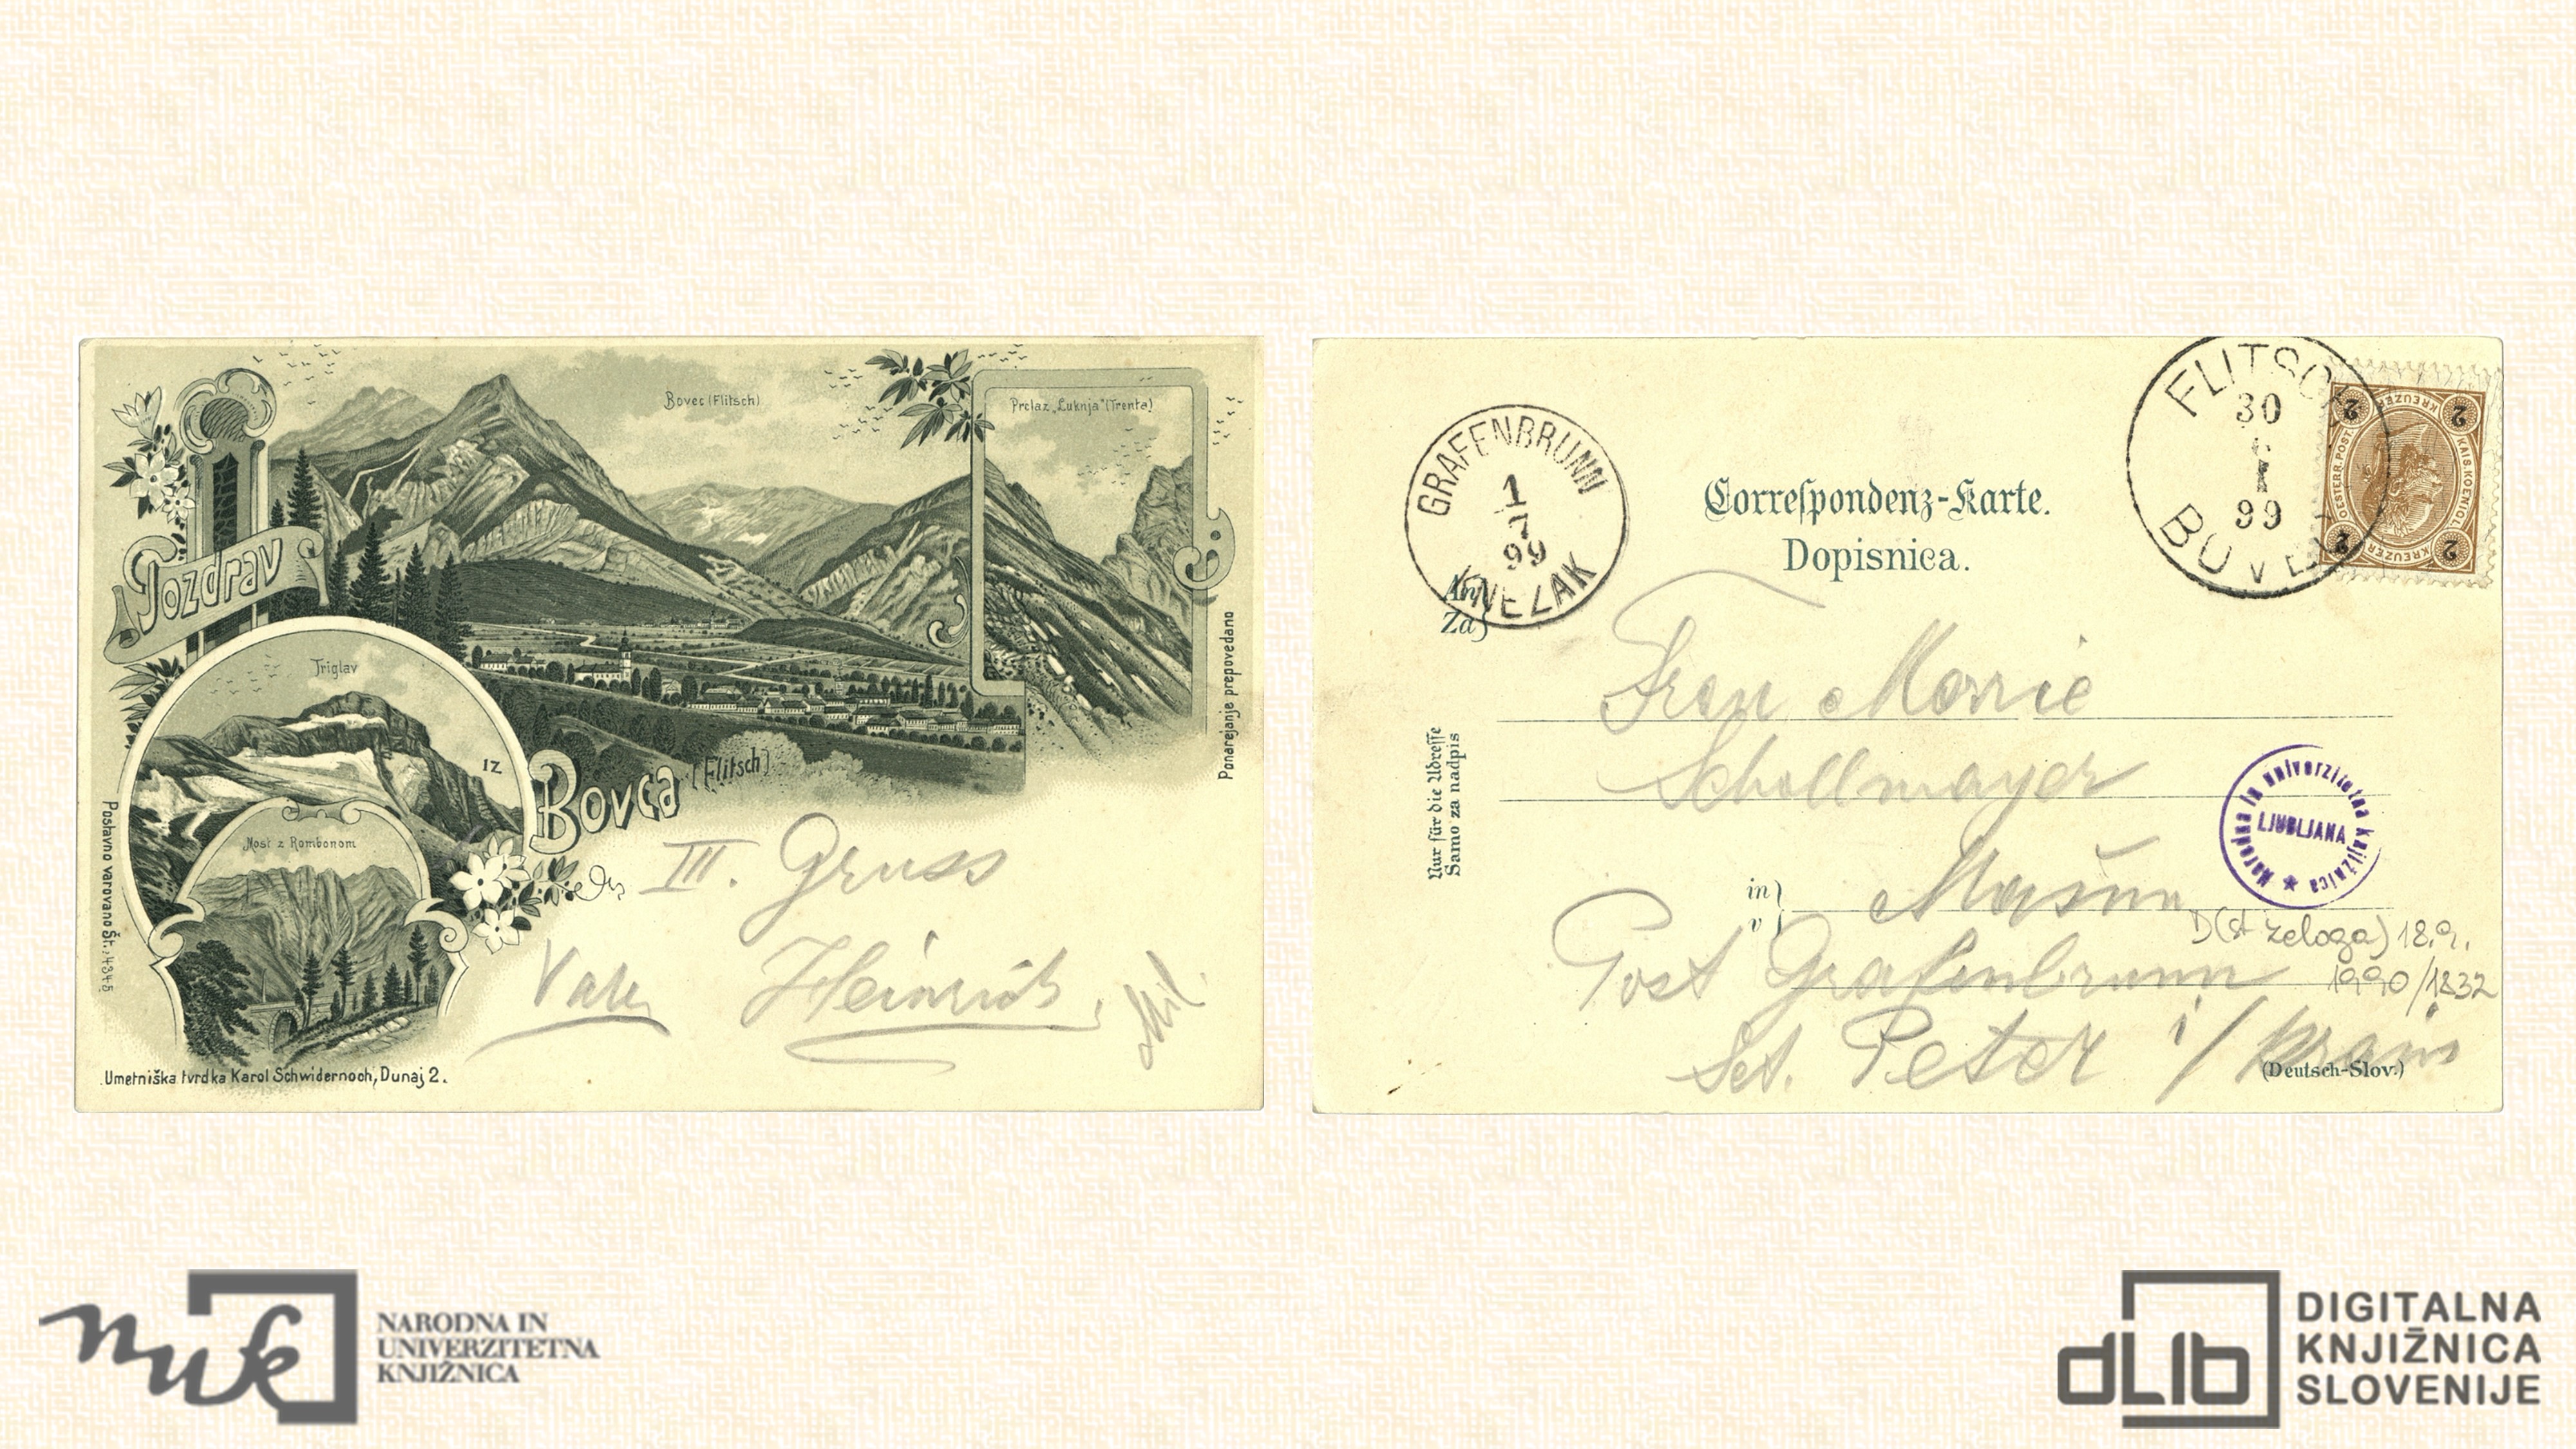 Pozdrav
Bovec (Flitsch)
Prelaz „Luknja" (Trenta)
Triglav
Most z Rombonom
IZ
Bovca (Flitsch)
III. Gruss
Heinrich
Postavno varovano Št. 4345
Ponarejanje prepovedano
Umetniška tvrdka Karol Schwidernoch, Dunaj 2.
GRAFENBRUNN
1
7
99
KNEŽAK
FLITSCH
30
99
BOVEC
2 2
2 2
KREUZER
KAIS. KOENIGL
OESTERR. POST
KREUZER
Correspondenz-Karte.
Dopisnica.
An
Za
Frau Marie
Schollmayer
in
v
Mašun
Post Grafenbrunn
Sct. Peter i/Krain
Nur für die Adresse
Samo za nadpis
Narodna in univerzitetna knjižnica
LJUBLJANA
D(st zeloga) 18.9.
1990/1832
(Deutsch-Slov.)
nuk
NARODNA IN
UNIVERZITETNA
KNJIŽNICA
dLib
DIGITALNA
KNJIŽNICA
SLOVENIJE